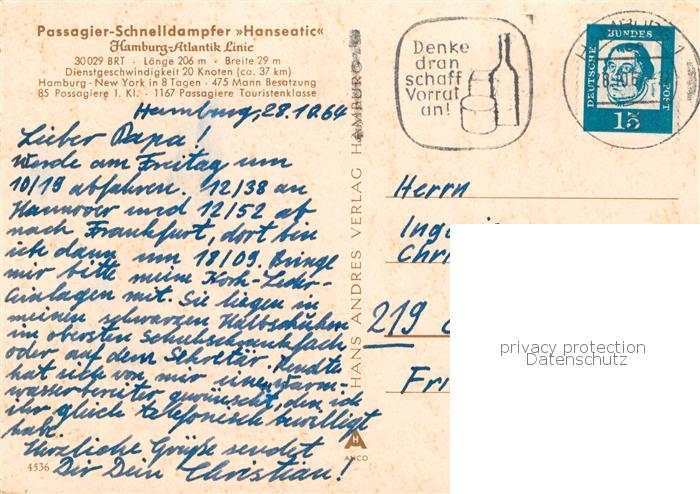 Passagier-Schnelldampfer »Hanseatic«
Hamburg-Atlantik Linie
30029 BRT · Länge 206 m · Breite 29 m
Dienstgeschwindigkeit 20 Knoten (ca. 37 km)
Hamburg - New York in 8 Tagen · 475 Mann Besatzung
85 Passagiere 1. Kl. · 1167 Passagiere Touristenklasse
Hamburg, 28.10.64
Lieber Papa!
werde am Freitag um
10/19 abfahren. 12/38 an
Hannover und 12/52 ab
nach Frankfurt, dort bin
ich dann um 18/09. Bringe
mir bitte meine Kork-Leder-
einlagen mit. Sie liegen in
meinen schwarzen Halbschuhen
im obersten Schuhschrankfach
oder auf dem Sekretär.
hat sich von mir einen warm-
wasserbereiter gewünscht, den ich
ihr gleich telefonisch bewilligt
habe.
Herzliche Grüße sendet
Dir Dein Christian!
4536
HANS ANDRES VERLAG HAMBURG
H
ANCO
Denke
dran
schaff
Vorrat
an!
DEUTSCHE
BUNDES
POST
15
Herrn
219
privacy protection
Datenschutz